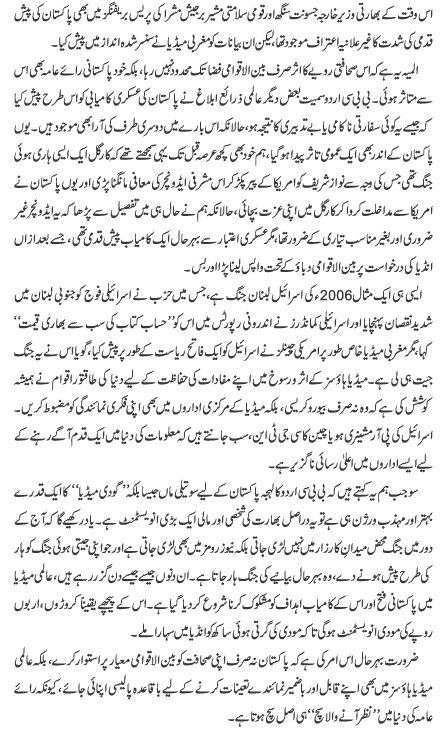 اس وقت کے بھارتی وزیر خارجہ جسونت سنگھ اور قومی سلامتی مشیر برجیش مشرا کی پریس بریفنگز میں بھی پاکستان کی پیش
قدمی کی شدت کا غیر علانیہ اعتراف موجود تھا، لیکن ان بیانات کو مغربی میڈیا نے سنسر شدہ انداز میں پیش کیا۔
المیہ یہ ہے کہ اس صحافتی رویے کا اثر صرف بین الاقوامی فضا تک محدود نہیں رہا، بلکہ خود پاکستانی رائے عامہ بھی اس
سے متاثر ہوئی۔ بی بی سی اردو سمیت بعض دیگر عالمی ذرائع ابلاغ نے پاکستان کی عسکری کامیابی کو اس طرح پیش کیا
کہ جیسے یہ کوئی سفارتی ناکامی یا بے تدبیری کا نتیجہ ہو، حالانکہ اس بارے میں دوسری طرف کی آرا بھی موجود ہیں۔ یوں
پاکستان کے اندر بھی ایک عمومی تاثر پیدا ہو گیا، ہم خود بھی کچھ عرصہ قبل تک یہی سمجھتے تھے کہ کارگل ایک ایسی ہاری ہوئی
جنگ تھی جس کی وجہ سے نواز شریف کو امریکا کے پیر پکڑ کر اس مشرفی ایڈونچر کی معافی مانگنا پڑی اور یوں پاکستان نے
امریکا سے مداخلت کروا کر کارگل میں اپنی عزت بچائی، حالانکہ ہم نے حال ہی میں تفصیل سے پڑھا کہ یہ ایڈونچر غیر
ضروری اور بغیر مناسب تیاری کے ضرور تھا، مگر عسکری اعتبار سے بہرحال ایک کامیاب پیش قدمی تھی، جسے بعد ازاں
انڈیا کی درخواست پر بین الاقوامی دباؤ کے تحت واپس لینا پڑا اور بس۔
ایسی ہی ایک مثال 2006ء کی اسرائیل لبنان جنگ ہے، جس میں حزب نے اسرائیلی فوج کو جنوبی لبنان میں
شدید نقصان پہنچایا اور اسرائیلی کمانڈرز نے اندرونی رپورٹس میں اس کو ’’حساب کتاب کی سب سے بھاری قیمت‘‘
کہا، مگر مغربی میڈیا خاص طور پر امریکی چینلز نے اسرائیل کو ایک فاتح ریاست کے طور پر پیش کیا، گویا اس نے یہ جنگ
جیت لی ہی ہے۔ میڈیا ہاؤسز کے اثر و رسوخ میں اپنے مفادات کی حفاظت کے لیے دنیا کی طاقتور اقوام نے ہمیشہ
کوشش کی ہے کہ وہ نہ صرف بیوروکریسی، بلکہ میڈیا کے مرکزی اداروں میں بھی اپنی فکری نمائندگی کو مضبوط کریں۔
اسرائیل کی پی آر مشینری ہو یا چین کا سی جی ٹی این، سب جانتے ہیں کہ معلومات کی دنیا میں ایک قدم آگے رہنے کے
لیے ایسے اداروں میں اعلیٰ رسائی ناگزیر ہے۔
سو جب ہم یہ کہتے ہیں کہ بی بی سی اردو کا لہجہ پاکستان کے لیے سوتیلی ماں جیسا بلکہ ’’گودی میڈیا‘‘ کا ایک قدرے
بہتر اور مہذب ورژن ہی ہے تو یہ دراصل بھارت کی شخصی اور مالی ایک بڑی انویسٹمنٹ ہے۔ یاد رکھیے گا کہ آج کے
دور میں جنگ محض میدان کارزار میں نہیں لڑی جاتی، بلکہ نیوز رومز میں بھی لڑی جاتی ہے اور جو اپنی جیتی ہوئی جنگ کو ہار
کی طرح پیش ہونے دے، وہ بہرحال بیانیے کی جنگ ہار جاتا ہے۔ ان دنوں جیسے جیسے دن گزر رہے ہیں، عالمی میڈیا
میں پاکستانی فتح اور اس کے کامیاب اہداف کو مشکوک کرنا شروع کر دیا گیا ہے۔ اس کے پیچھے یقیناً کروڑوں، اربوں
روپے کی مودی انویسٹمنٹ ہو گی تاکہ مودی کی گرتی ہوئی ساکھ کو انڈیا میں سہارا ملے۔
ضرورت بہرحال اس امر کی ہے کہ پاکستان نہ صرف اپنی صحافت کو بین الاقوامی معیار پر استوار کرے، بلکہ عالمی
میڈیا ہاؤسز میں بھی اپنے قابل اور باضمیر نمائندے تعینات کرنے کے لیے باقاعدہ پالیسی اپنائی جائے، کیونکہ رائے
عامہ کی دنیا میں ’’نظر آنے والا سچ‘‘ ہی اصل سچ ہوتا ہے۔